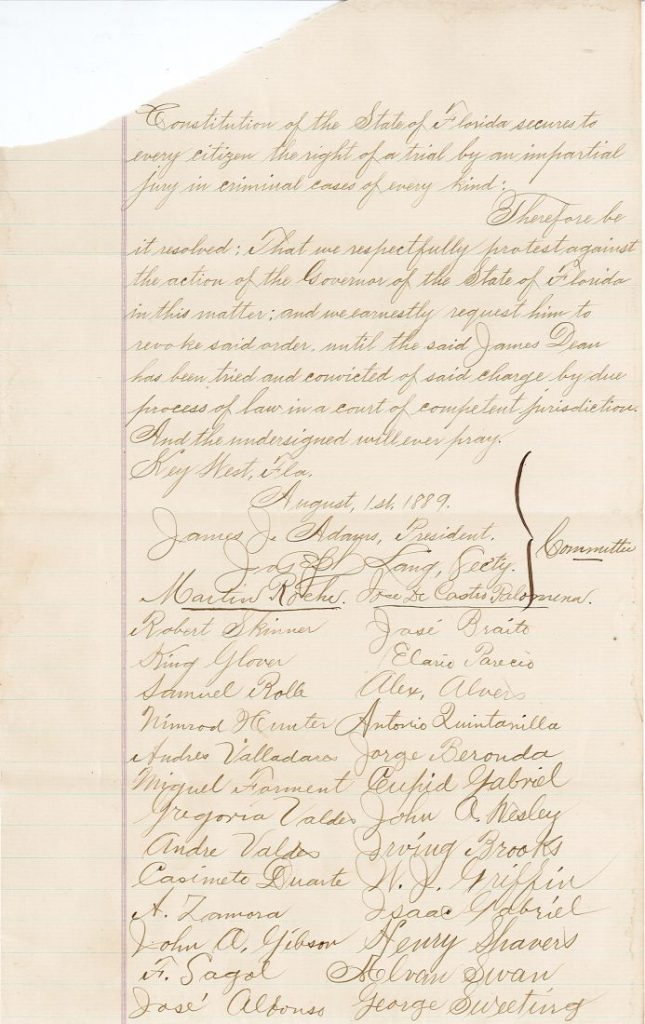 Constitution of the State of Florida secures to
every citizen the right of a trial by an impartial
jury in criminal cases of every kind:
Therefore be
it resolved: That we respectfully protest against
the action of the Governor of the State of Florida
in this matter; and we earnestly request him to
revoke said order, until the said James Dean
has been tried and convicted of said charge by due
process of law in a court of competent jurisdiction.
And the undersigned will ever pray.
Key West, Fla.
August, 1st. 1889.
James J. Adams, President.
Lang, Secty.
Committee
Martin Roche. Jose De Castro Palomena.
Robert Skinner José Braito
King Glover Elario Parecio
Samuel Rolle Alex, Alvers
Nimrod Hunter Antonio Quintanilla
Andres Valladares Jorge Beronda
Miguel Forment Cupid Gabriel
Gregoria Valdes John A. Wesley
Andre Valdes Irving Brooks
Casimeto Duarte W. J. Griffin
A. Zamora Isaac Gabriel
John A. Gibson Henry Shavers
F. Sagol Alvan Swan
José Alfonso George Sweeting